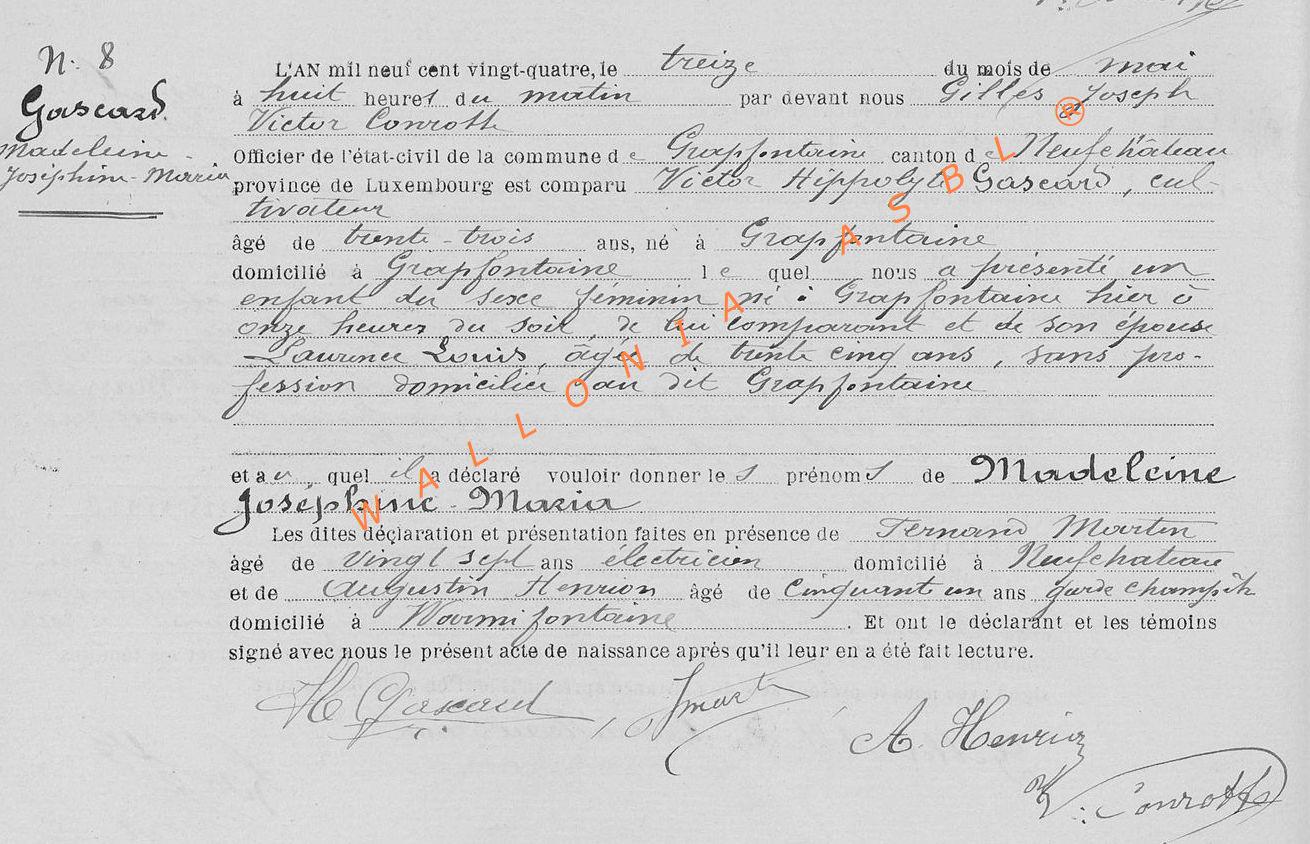 N. 8
Gascard
Madeleine
Joséphine-Maria
L'AN mil neuf cent vingt-quatre, le treize du mois de mai
à huit heures du matin par devant nous Gilles Joseph
Victor Conrotte
Officier de l'état-civil de la commune de Grapfontaine canton de Neufchâteau
province de Luxembourg est comparu Victor Hippolyte Gascard, cul-
tivateur
âgé de trente-trois ans, né à Grapfontaine
domicilié à Grapfontaine lequel nous a présenté un
enfant du sexe féminin né à Grapfontaine hier à
onze heures du soir, de lui comparant et de son épouse
Laurence Louis, âgée de trente cinq ans, sans pro-
fession domiciliée au dit Grapfontaine
et au quel il a déclaré vouloir donner les prénoms de Madeleine
Joséphine-Maria
Les dites déclaration et présentation faites en présence de Fernand Martin
âgé de vingt sept ans électricien domicilié à Neufchateau
et de Augustin Henrion âgé de Cinquant un ans garde champêtr
domicilié à Warmifontaine. Et ont le déclarant et les témoins
signé avec nous le présent acte de naissance après qu'il leur en a été fait lecture.
H Gascard, F Martin
A. Henrion
V. Conrotte
WALLONIA ASBL ®